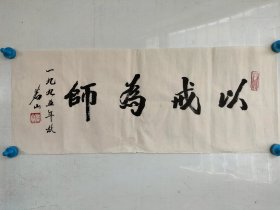 以戒為師
一九九五年放
若山